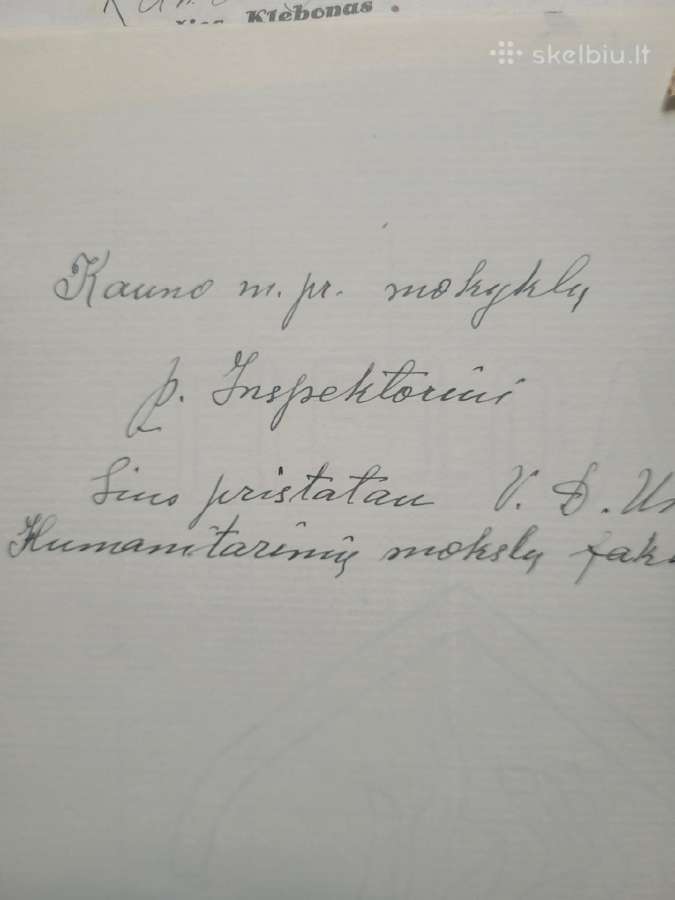 Klèbonas .
skelbiu.lt
Kauno m. pr. mokyklų
p. Inspektoriui
Šiuo pristatau V. D. Un
Humanitarinių mokslų faku